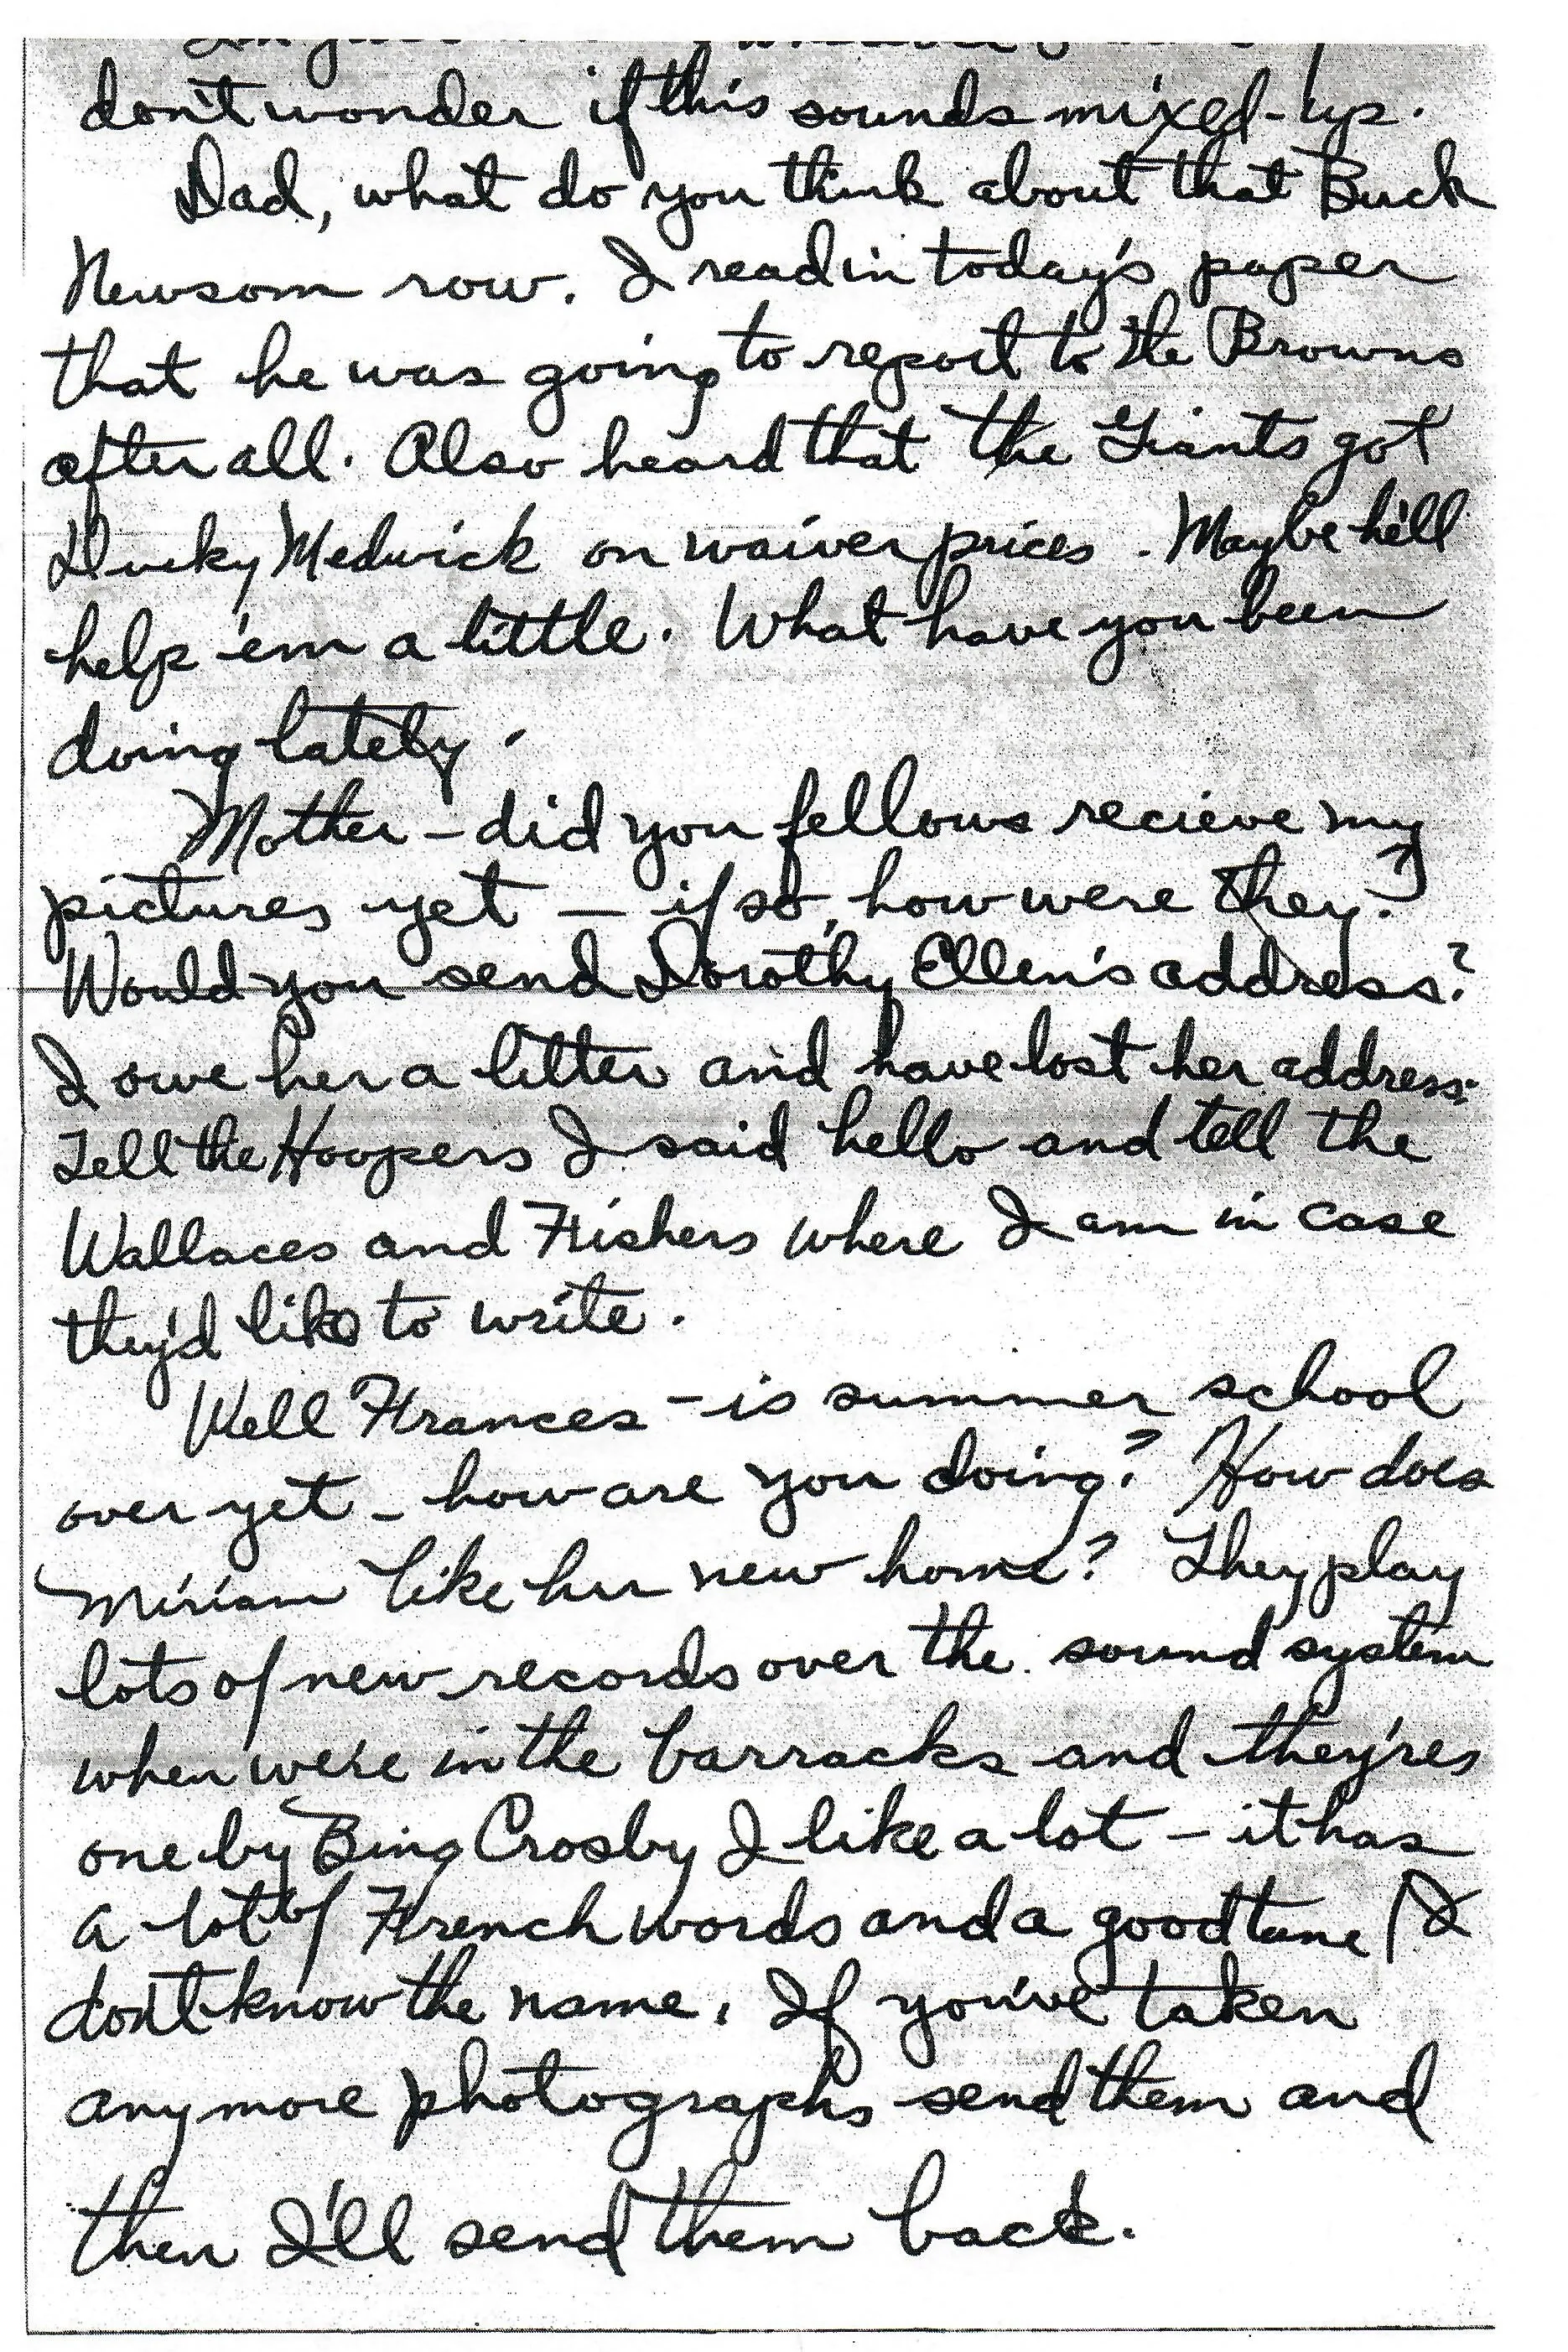 don't wonder if this sounds mixed-up.
Dad, what do you think about that Buck
Newsom row. I read in today's paper
that he was going to report to the Browns
after all. Also heard that the Giants got
Ducky Medwick on waiver prices. Maybe he'll
help 'em a little. What have you been
doing lately.
Mother - did you fellows recieve my
pictures yet — if so, how were they?
Would you send Dorothy Ellen's address?
I owe her a letter and have lost her address.
Tell the Hoopers I said hello and tell the
Wallaces and Fishers where I am in case
they'd like to write.
Well Frances - is summer school
over yet - how are you doing? How does
Miriam like her new home? They play
lots of new records over the sound system
when we're in the barracks and they'res
one by Bing Crosby I like a lot - it has
a lot of French words and a good tune (I
don't know the name. If you've taken
any more photographs send them and
then I'll send them back.